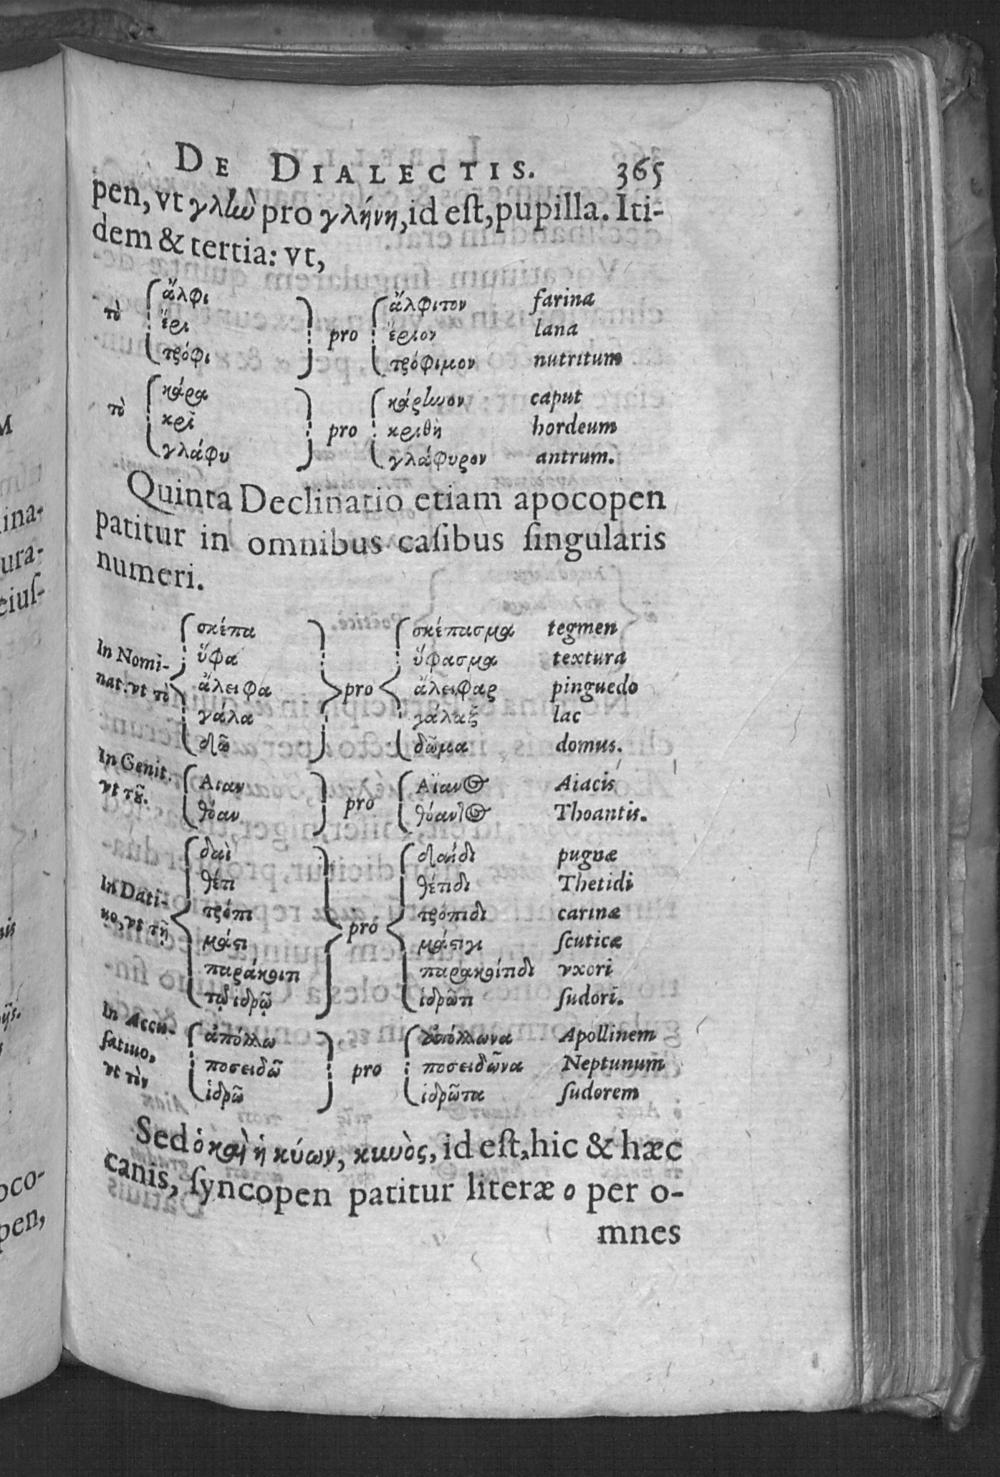 DE DIALECTIS. 365
pen, vt γλὼ pro γλήνη, id eſt, pupilla. Iti-
dem & tertia: vt,
τὸ ἄλφι pro ἄλφιτον farina
ἔρι ἔριον lana
τρόφι τρόφιμον nutritum
τὸ κάρα pro κάρηνον caput
κρῖ κριθὴ hordeum
γλάφυ γλάφυρον antrum.
Quinta Declinatio etiam apocopen
patitur in omnibus caſibus ſingularis
numeri.
In Nomi-
nat. vt τὸ
σκέπα pro σκέπασμα tegmen
ὕφα ὕφασμα textura
ἄλειφα ἄλειφαρ pinguedo
γάλα γάλαξ lac
δῶ δῶμα domus.
In Genit.
vt τοῦ.
Αιαν pro Αἴαντος Aiacis
θόαν θόαντος Thoantis.
In Dati-
uo, vt τῇ
δαῒ pro δαΐδι pugnæ
θέτι θέτιδι Thetidi
τρόπι τρόπιδι carinæ
μάστι μάστιγι ſcuticæ
παράκοιτι παρακοίτιδι vxori
τῷ ἱδρῷ ἱδρῶτι ſudori.
In Accu-
ſatiuo,
vt τὸν
ἀπόλλω pro ἀπόλλωνα Apollinem
ποσειδῶ ποσειδῶνα Neptunum
ἱδρῶ ἱδρῶτα ſudorem
Sed ὁ καὶ ἡ κύων, κυνὸς, id eſt, hic & hæc
canis, ſyncopen patitur literæ o per o-
mnes